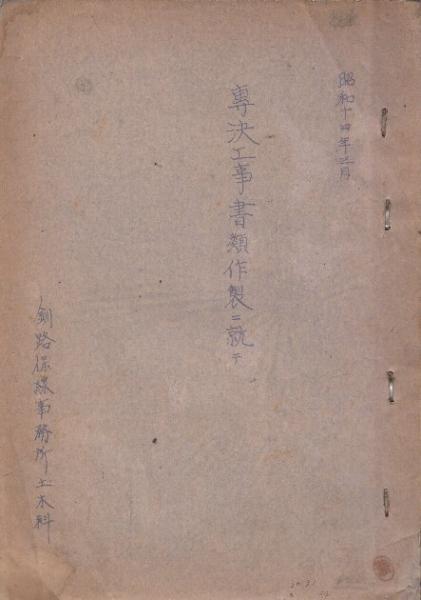 昭和十四年三月
專決工事書類作製ニ就テ
釧路保線事務所土木科